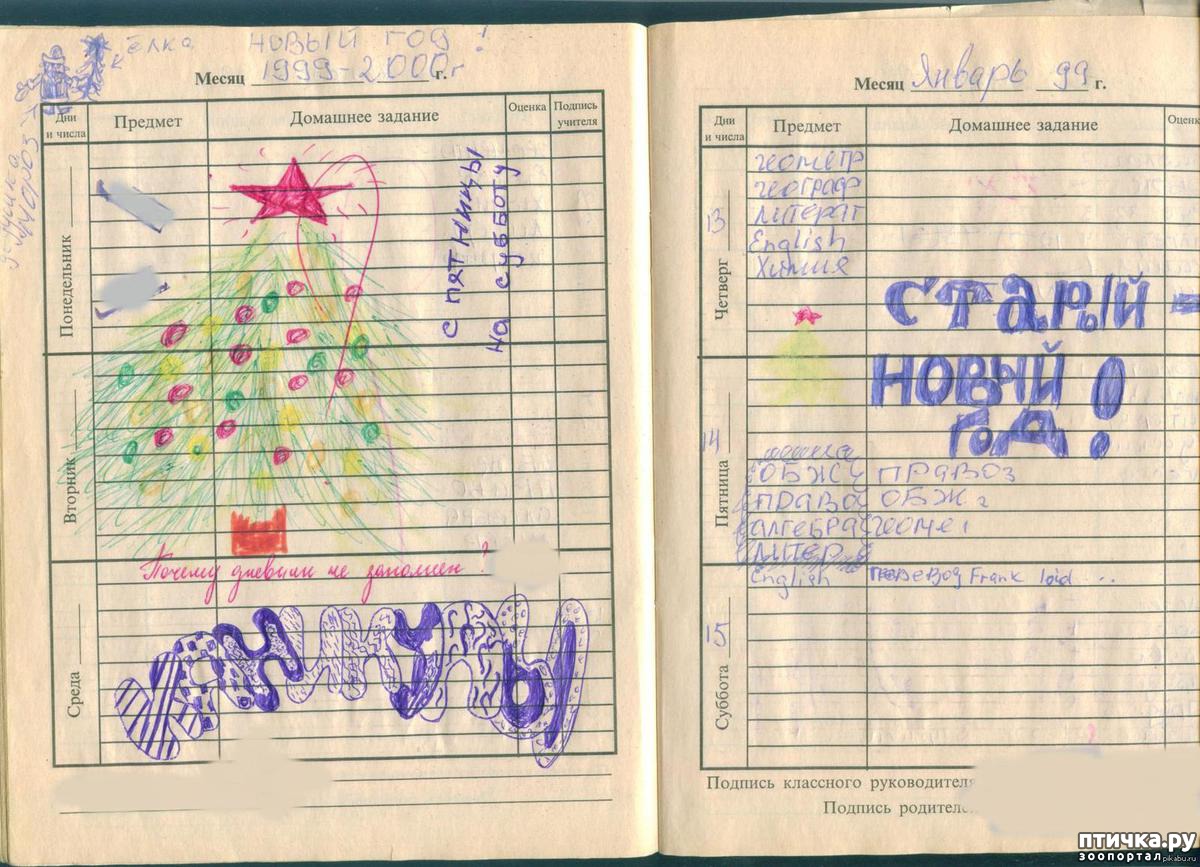 ёлка
НОВЫЙ ГОД !
Месяц 1999-2000г г.
дедушка мороз
Дни и числа
Предмет
Домашнее задание
Оценка
Подпись учителя
Понедельник
с пятницы
на субботу
Вторник
Почему дневник не заполнен?
Среда
КАНИКУЛЫ
Месяц Январь 99 г.
Дни и числа
Предмет
Домашнее задание
Оценк
13
Четверг
геометр
географ
литерат
English
Химия
СТАРЫЙ -
НОВЫЙ
ГОД !
14
Пятница
ОБЖ ПРАВОЗ
ПРАВО ОБЖ
алгебра геоме
литер
English перевод Frank loid ...
15
Суббота
Подпись классного руководителя
Подпись родител
птичка.ру
зоопортал
pikabu.ru